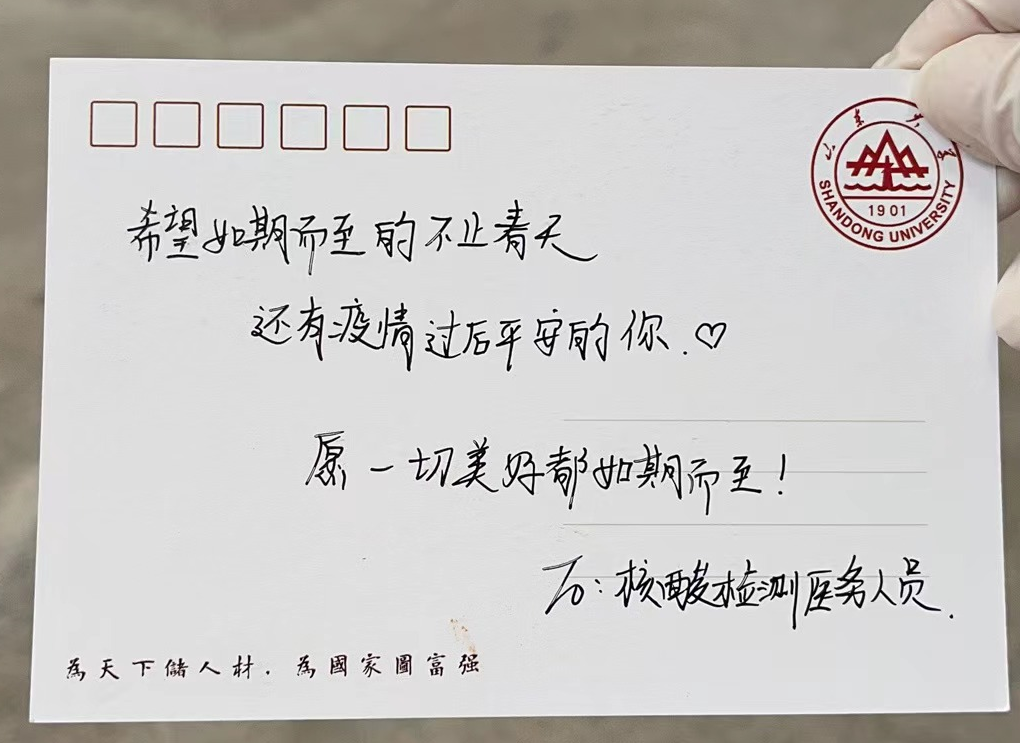 山东大学
SHANDONG UNIVERSITY
1901
希望如期而至的不止春天
还有疫情过后平安的你.♡
愿一切美好都如期而至！
To：核酸检测医务人员.
為天下儲人材，為國家圖富强